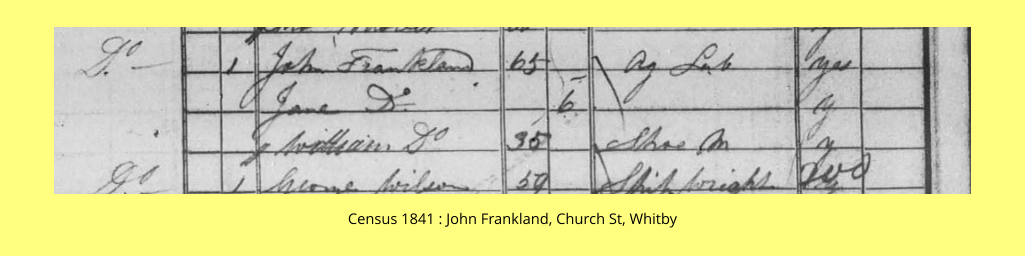 Do 1 John Frankland 65 Ag Lab yes
Jane Do 6 y
William Do 35 Shoe M y
Do 1 George Wilson 59 Ship wright
Census 1841 : John Frankland, Church St, Whitby